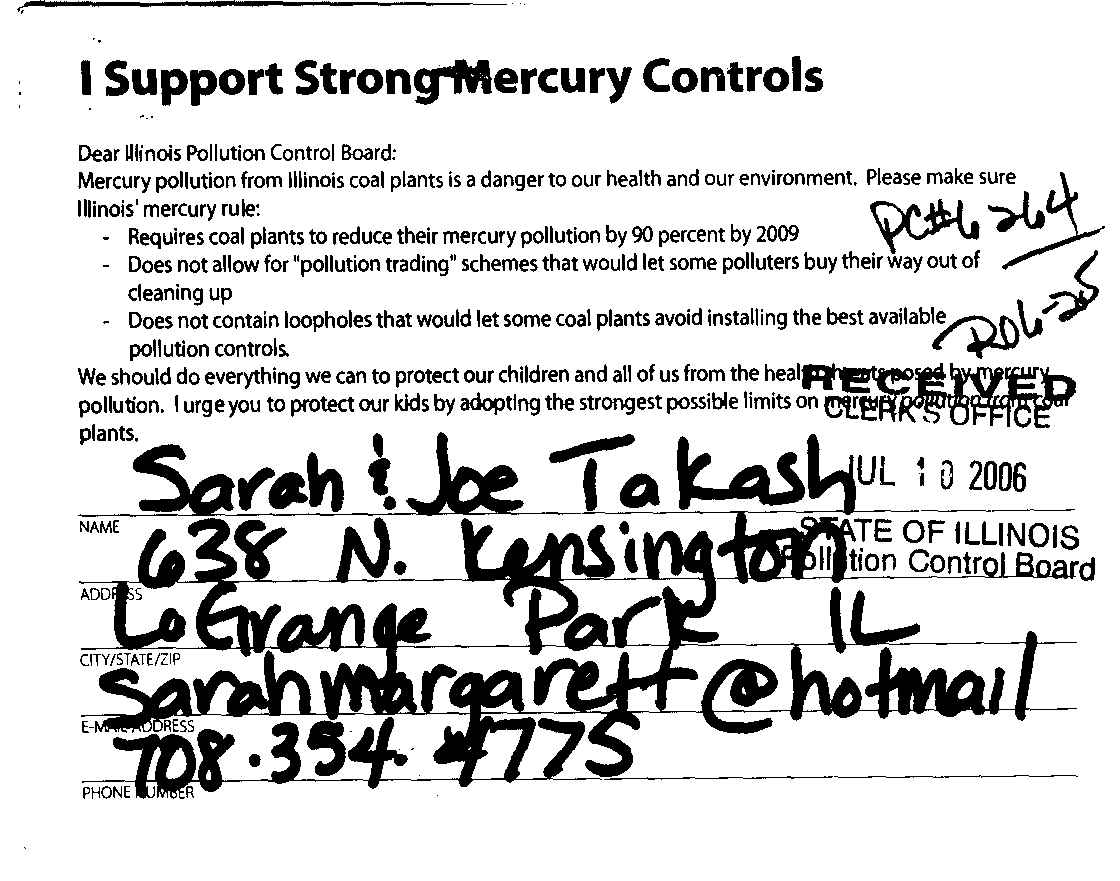 I Support Strong Mercury Controls
Dear Illinois Pollution Control Board:
Mercury pollution from Illinois coal plants is a danger to our health and our environment. Please make sure
Illinois' mercury rule:
- Requires coal plants to reduce their mercury pollution by 90 percent by 2009
- Does not allow for "pollution trading" schemes that would let some polluters buy their way out of
cleaning up
- Does not contain loopholes that would let some coal plants avoid installing the best available
pollution controls.
PC#6264
R06-25
We should do everything we can to protect our children and all of us from the health threats posed by mercury
pollution. I urge you to protect our kids by adopting the strongest possible limits on mercury pollution from coal
plants.
RECEIVED
CLERK'S OFFICE
JUL 10 2006
STATE OF ILLINOIS
Pollution Control Board
Sarah & Joe Takash
NAME
638 N. Kensington
ADDRESS
LaGrange Park IL
CITY/STATE/ZIP
Sarahmargarett@hotmail
E-MAIL ADDRESS
708.354.4775
PHONE NUMBER